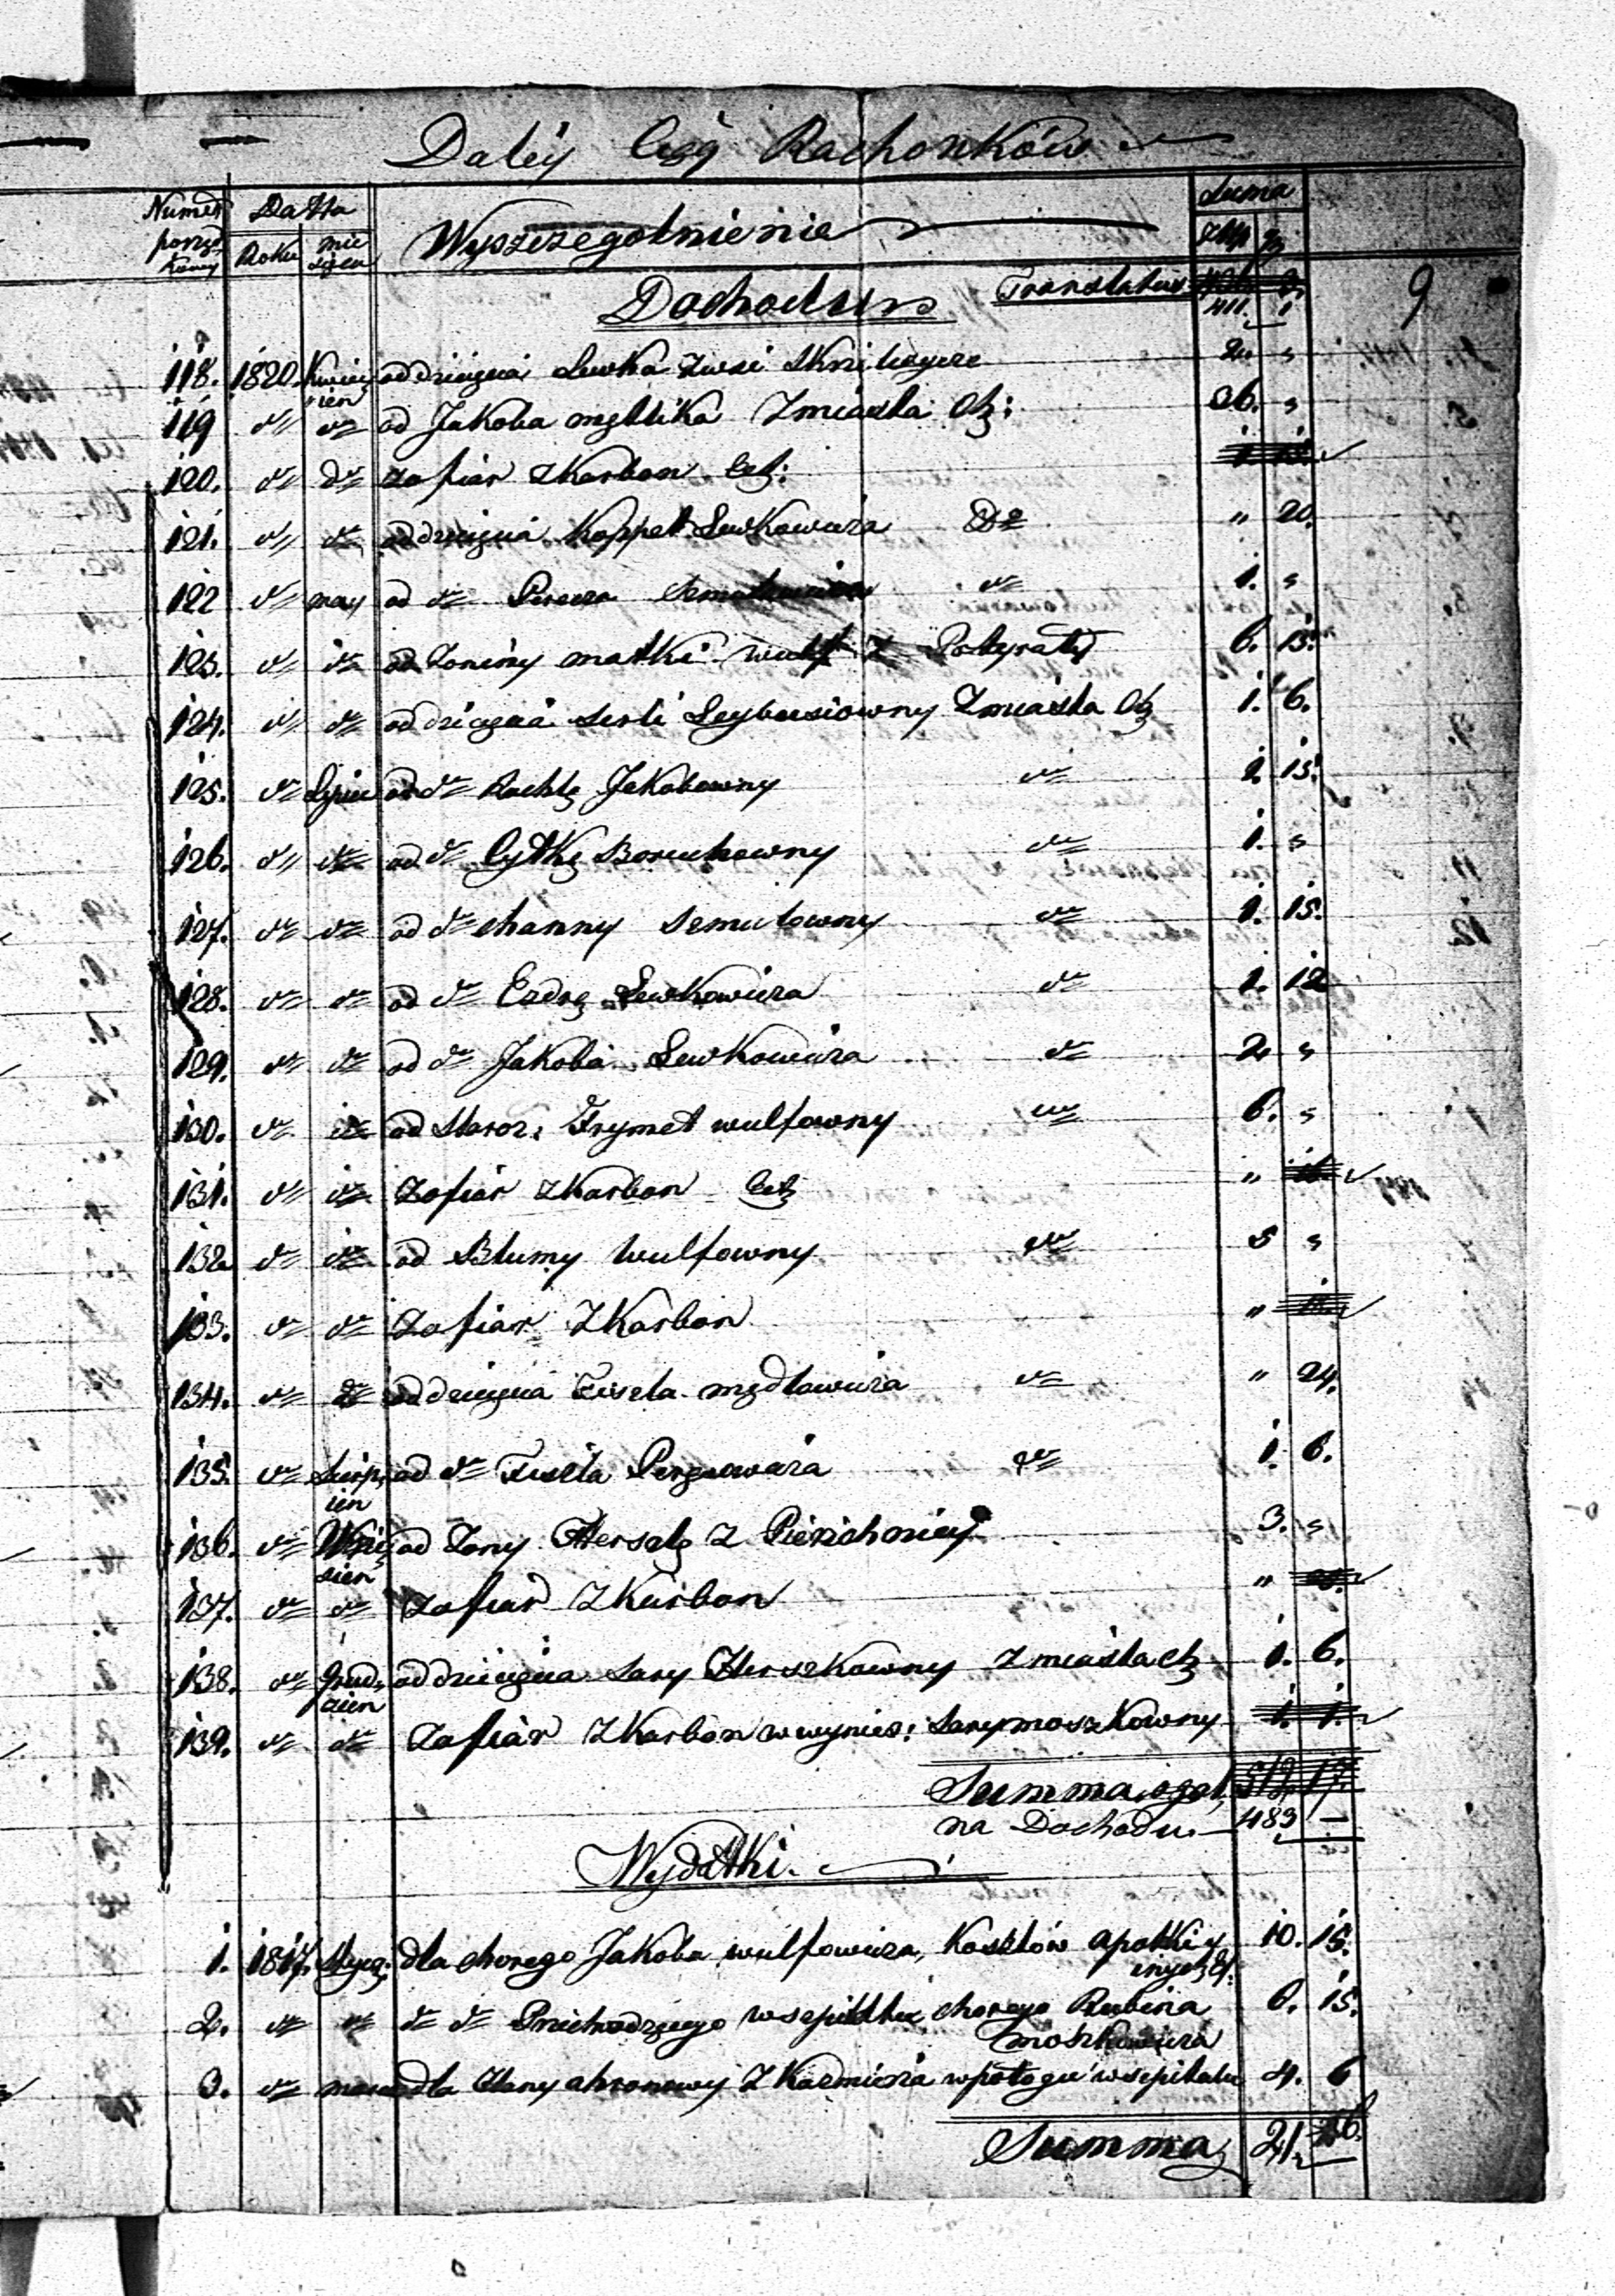 Daléy Ciąg Rachonków
Numer porząd kowy Datta Roku mie siąca Wyszczegolnienie Suma złłp gr
Dochodu Translatus 411. 1 9
118. 1820. Kwiecień od dziecięcia Lewka zwsi 2.. „
119 d° d° od Jakoba mętlika Zmiasta Cż: 36. „
120. d° d° zofiar zKarbon Cż:
121. d° d° od dziecięcia Koppel Lewkowicza D° „ 20.
122 d° may od d° Perecza d° 1. „
123. d° d° od Zoniny matki Wulf z 6. 15.
124. d° d° od dziecięcia Serli Leybusiowny Zmiasta Cż 1. 6.
125. d° Lipiec od d° Rachlę Jakobowny d° 1. 15.
126. d° d° od d° Cytkę Boruchowny d° 1. „
127. d° d° od d° channy Szmulowny d° 1. 15.
128. d° d° od d° Ezdrę Lewkowicza d° 1. 12
129. d° d° od d° Jakoba Lewkowicza d° 2. „
130. d° d° od Staroz: Frymet wulfowny d° 6. „
131. d° d° Zofiar zKarbon Cż „
132 d° d° od Blumy Wulfowny d° 5 „
133. d° d° Zofiar ZKarbon „
134. d° d° od dziecięcia Fiszla mędlowicza d° „ 24.
135. d° Sierpień od d° Fiszla d° 1. 6.
136. d° Wrzesień od Zony Herszlę z Pierichoniey 3. „
137. d° d° Zofiar ZKarbon „
138. d° Grudzień od dziecięcia Sary Herszkowny zmiasta Cż 1. 6.
139. d° d° Zofiar ZKarbon wwynies: Sary moszkowny 1. 1.
Summa ogol. 512. 17.
na Dochodu. 483 —
Wydatki.
1. 1817. Stycz: dla chorego Jakoba wulfowicza, Kosztów apotki y 10. 15.
innych
2. d° d° d° d° Przichodzącego wszpitalu chorego Rubina 6. 15.
moszkowicza
3. d° marca dla Hany ahronowy ZKazmirza wpołogu wszpitalu 4. 6
Summa 21. 6.